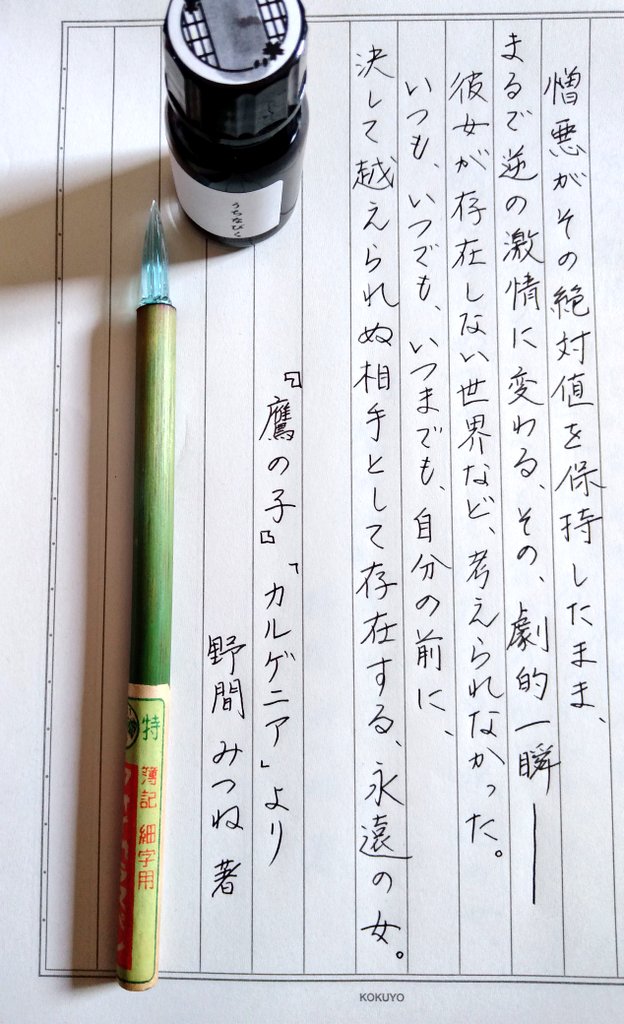 憎悪がその絶対値を保持したまま、
まるで逆の激情に変わる、その、劇的一瞬——
彼女が存在しない世界など、考えられなかった。
いつも、いつでも、いつまでも、自分の前に、
決して越えられぬ相手として存在する、永遠の女。
『鷹の子』「カルゲニア」より
野間みつね 著
うちなびく
特
簿記 細字用
KOKUYO